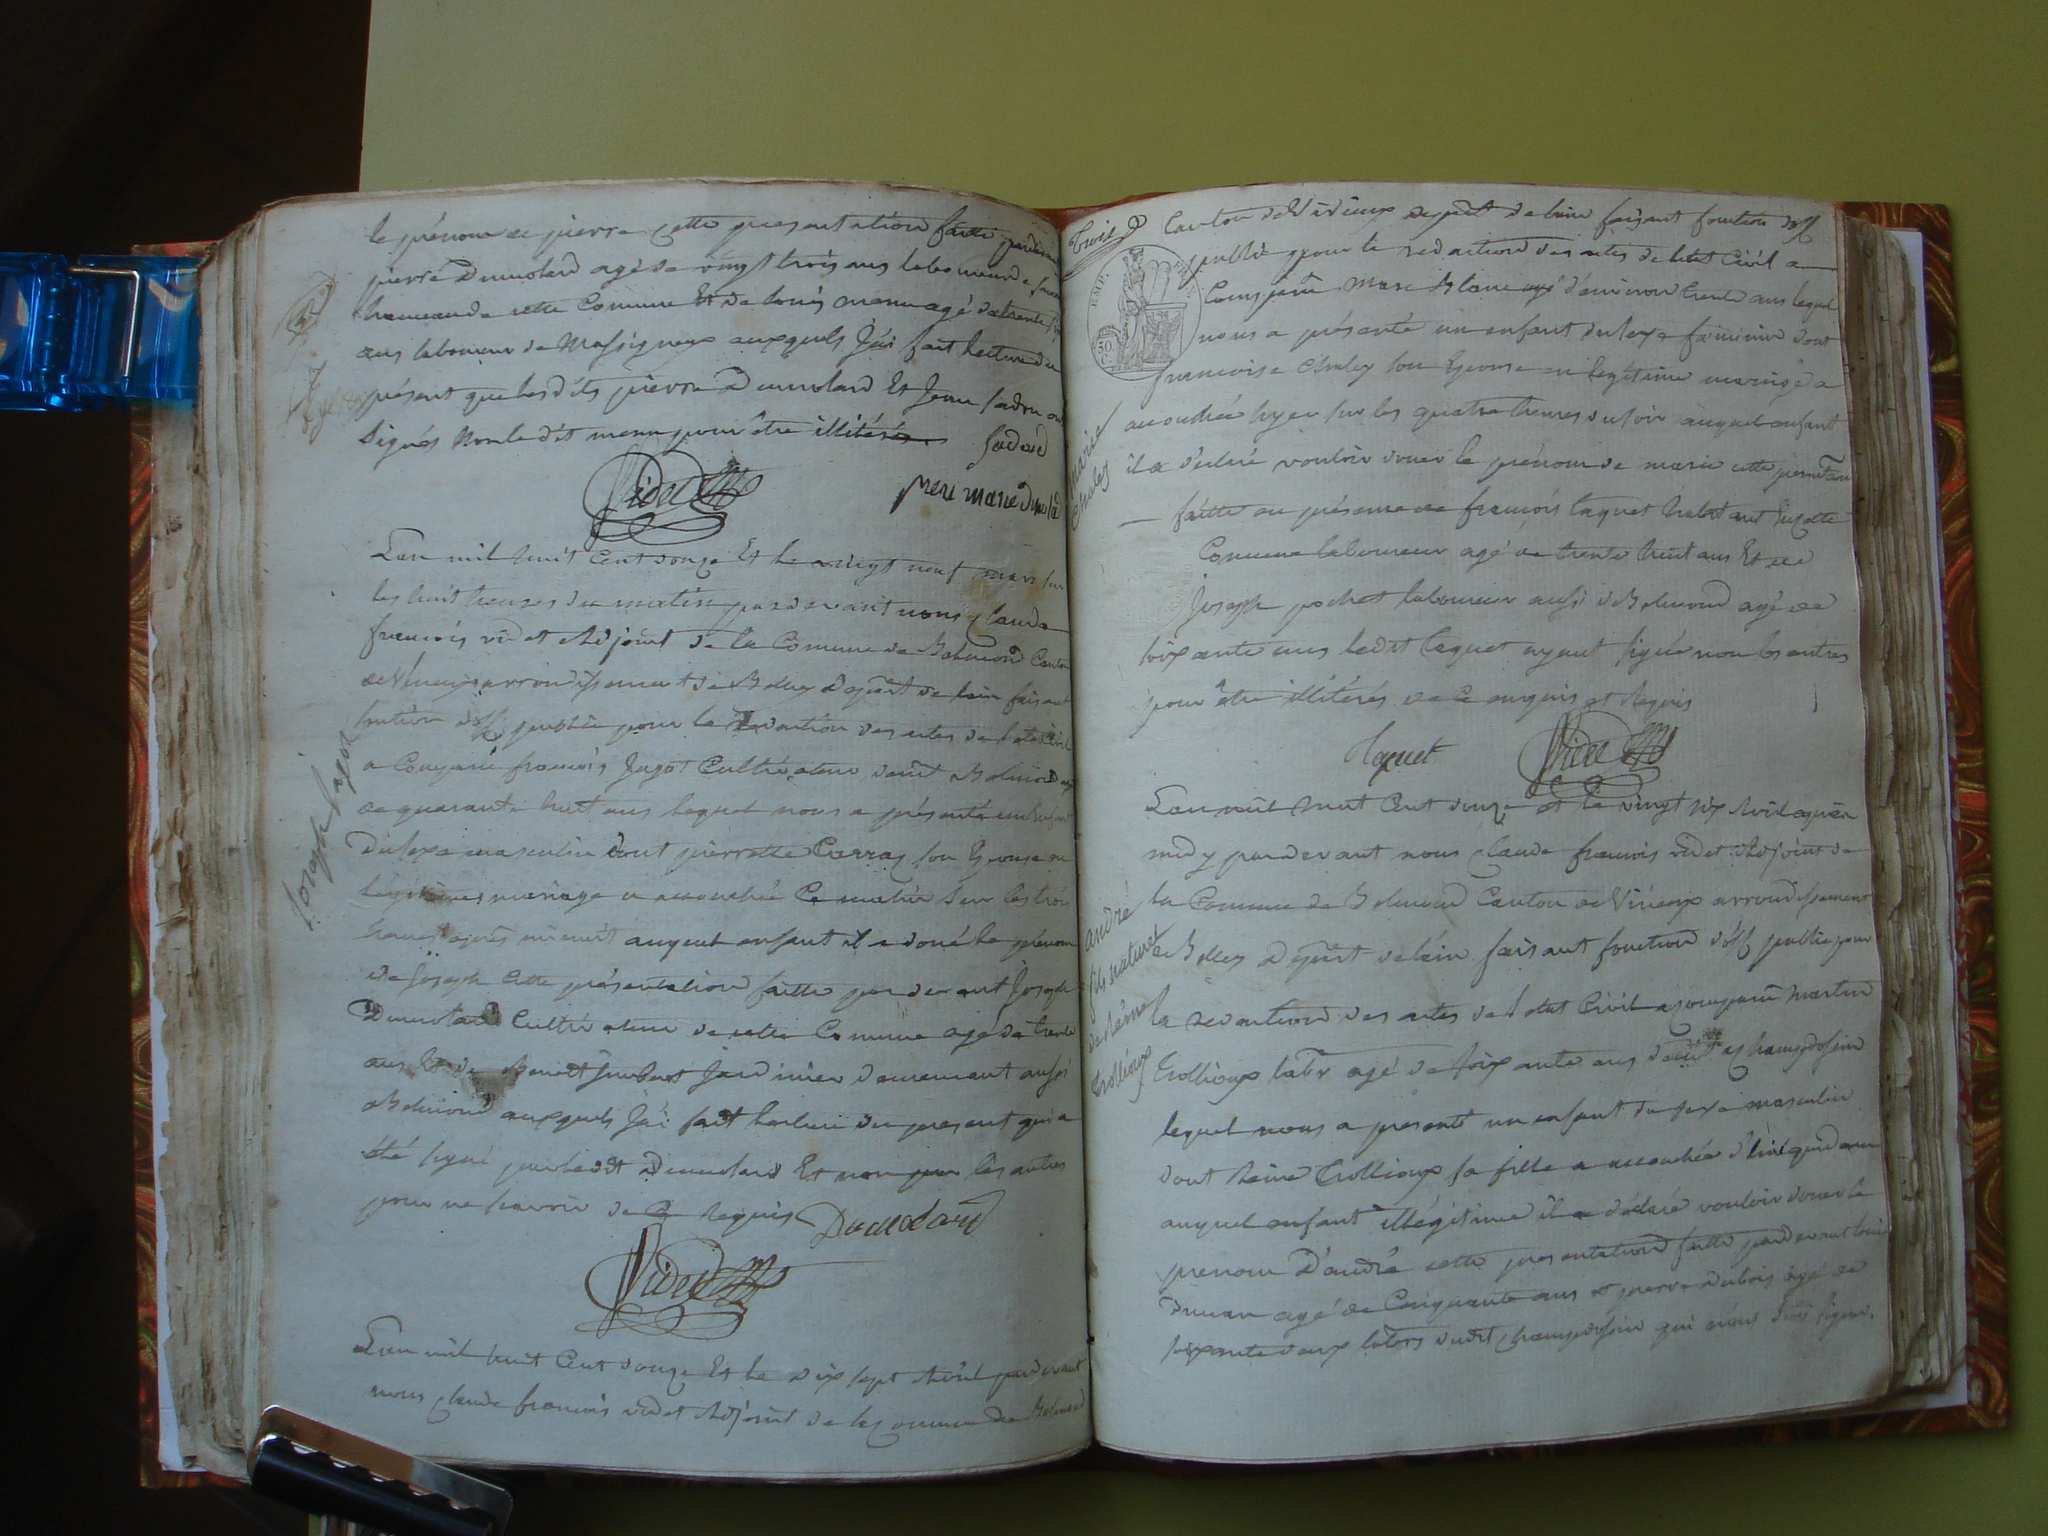 le prénom de pierre cette presentation faitte pardevant
pierre Dumolard agé de vingt trois ans laboureur de
hameau de cette Commune Et de louis menu agé de trente
ans laboureur de Massigneux auxquels J'ai fait lecture du
présent que lesdits pierre Dumolard Et Jean ont
signés Non le dit menu pour être illitéré
Videt
L'an mil huit Cent douze Et le vingt neuf mars sur
les huit heures du matin pardevant nous Claude
francois videt Adjoint de la Comune de Belmond Canton
de Virieux arrondissement de Belley Depart de lain faisant
fontion d'off public pour la Redaction des actes de letat Civil
a Comparu francois Jagot Cultivateur dudit Belmond agé
de quarante huit ans lequel nous a présenté un Enfant
Du sexe masculin dont pierrette Carraz son Epouse en
légitimes mariage a accouchée Ce matin sur les trois
heures après minuit auquel enfant il a doné le prénom
de Joseph Cette présentation faitte pardevant Joseph
Dumolard Cultivateur de cette Commune agé de trente
ans Et de Benoit Jardinier demeurant aussi
a Belmond auxquels J'ai fait lecture du present qui a
été signé par ledit Dumolard Et non par les autres
pour ne savoir de Ce Requis Dumolard
Videt
L'an mil huit Cent douze Et le dix sept Avril pardevant
nous Claude francois videt Adjoint de la Comune de Belmond
Joseph Jagot
Trois
Canton de Virieux depart de lain faisant fonction d'off
public pour la redaction des actes de letat Civil a
Comparu Marc agé d'environ trente ans lequel
nous a présenté un enfant du sexe féminin dont
francoise Chaley son Epouse en legitime mariage a
accouchée hyer sur les quatre heures du soir auquel enfant
il a déclaré vouloir doner le prénom de marie cette présentation
faitte en présence de francois taquet habitant
Comune laboureur agé de trente huit ans Et de
Joseph pochet laboureur aussi de Belmond agé de
soixante ans ledit taquet ayant signé non les autres
pour être illitérés de Ce enquis et Requis
taquet Videt
L'an mil huit Cent douze et le vingt six Avril après
midy pardevant nous Claude francois videt Adjoint de
la Comune de Belmond Canton de Virieux arrondissement
de Belley Depart de l'ain faisant fonction d'off public pour
la redaction des actes de l'etat Civil a comparu Martin
Trollioux labr agé de soixante ans dudit champdosin
lequel nous a presenté un enfant du sexe masculin
dont Reine Trollioux sa fille a accouchée
auquel enfant illégitime il a déclaré vouloir doner le
prenom D'andré cette presentation faitte pardevant
agé de Cinquante ans et pierre Dubois agé de
soixante deux labrs dudit champdosin qui
marie Chaley
andré
fils naturel
de Reine
trollioux